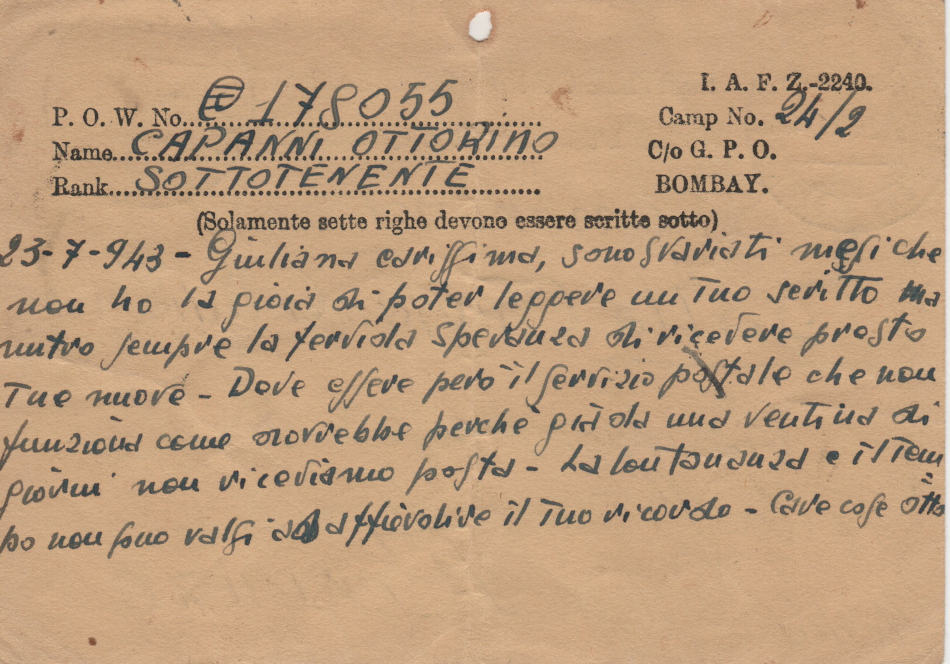 I. A. F. Z.-2240.
P. O. W. No. E 178055
Camp No. 24/2
Name CAPANNI OTTORINO
C/o G. P. O.
Rank SOTTOTENENTE
BOMBAY.
(Solamente sette righe devono essere scritte sotto)
23-7-943 - Giuliana carissima, sono svariati mesi che
non ho la gioia di poter leggere un Tuo scritto ma
nutro sempre la fervida speranza di ricevere presto
Tue nuove - Deve essere però il servizio postale che non
funziona come dovrebbe perchè già da una ventina di
giorni non riceviamo posta - La lontananza e il tem
po non può valsi ad affievolire il Tuo ricordo - Care cose Otto